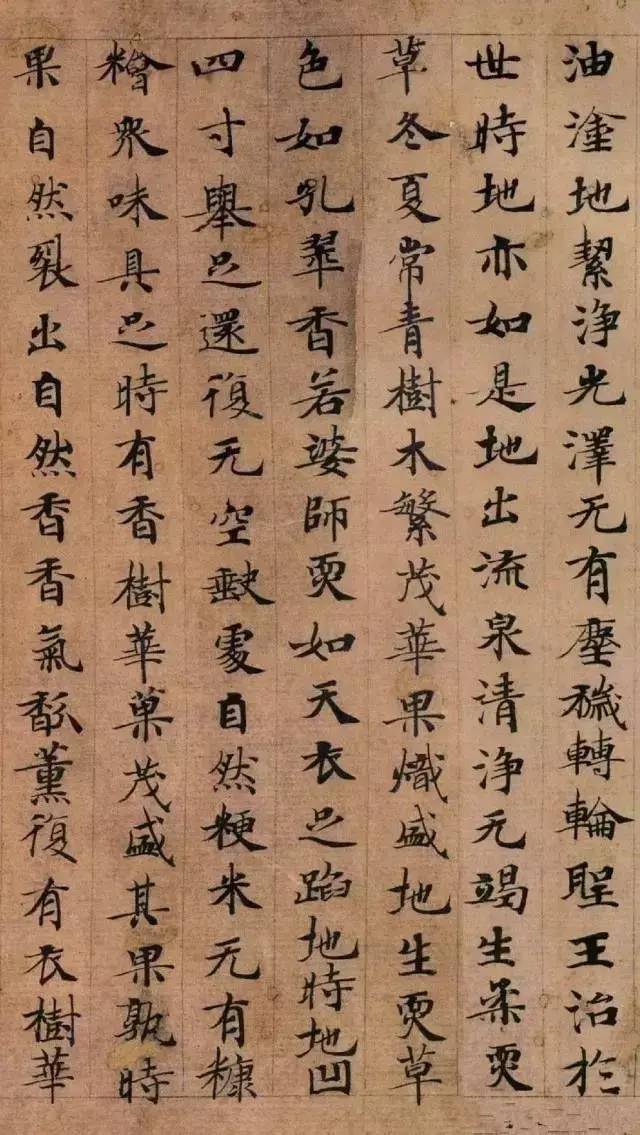 油塗地絜淨光澤无有塵穢轉輪聖王治於
世時地亦如是地出流泉清淨无竭生柔耎
草冬夏常青樹木繁茂華果熾盛地生耎草
色如孔翠香若婆師耎如天衣足蹈地時地凹
四寸舉足還復无空缺處自然粳米无有糠
糩衆味具足時有香樹華菓茂盛其果孰時
果自然裂出自然香香氣馚薰復有衣樹華